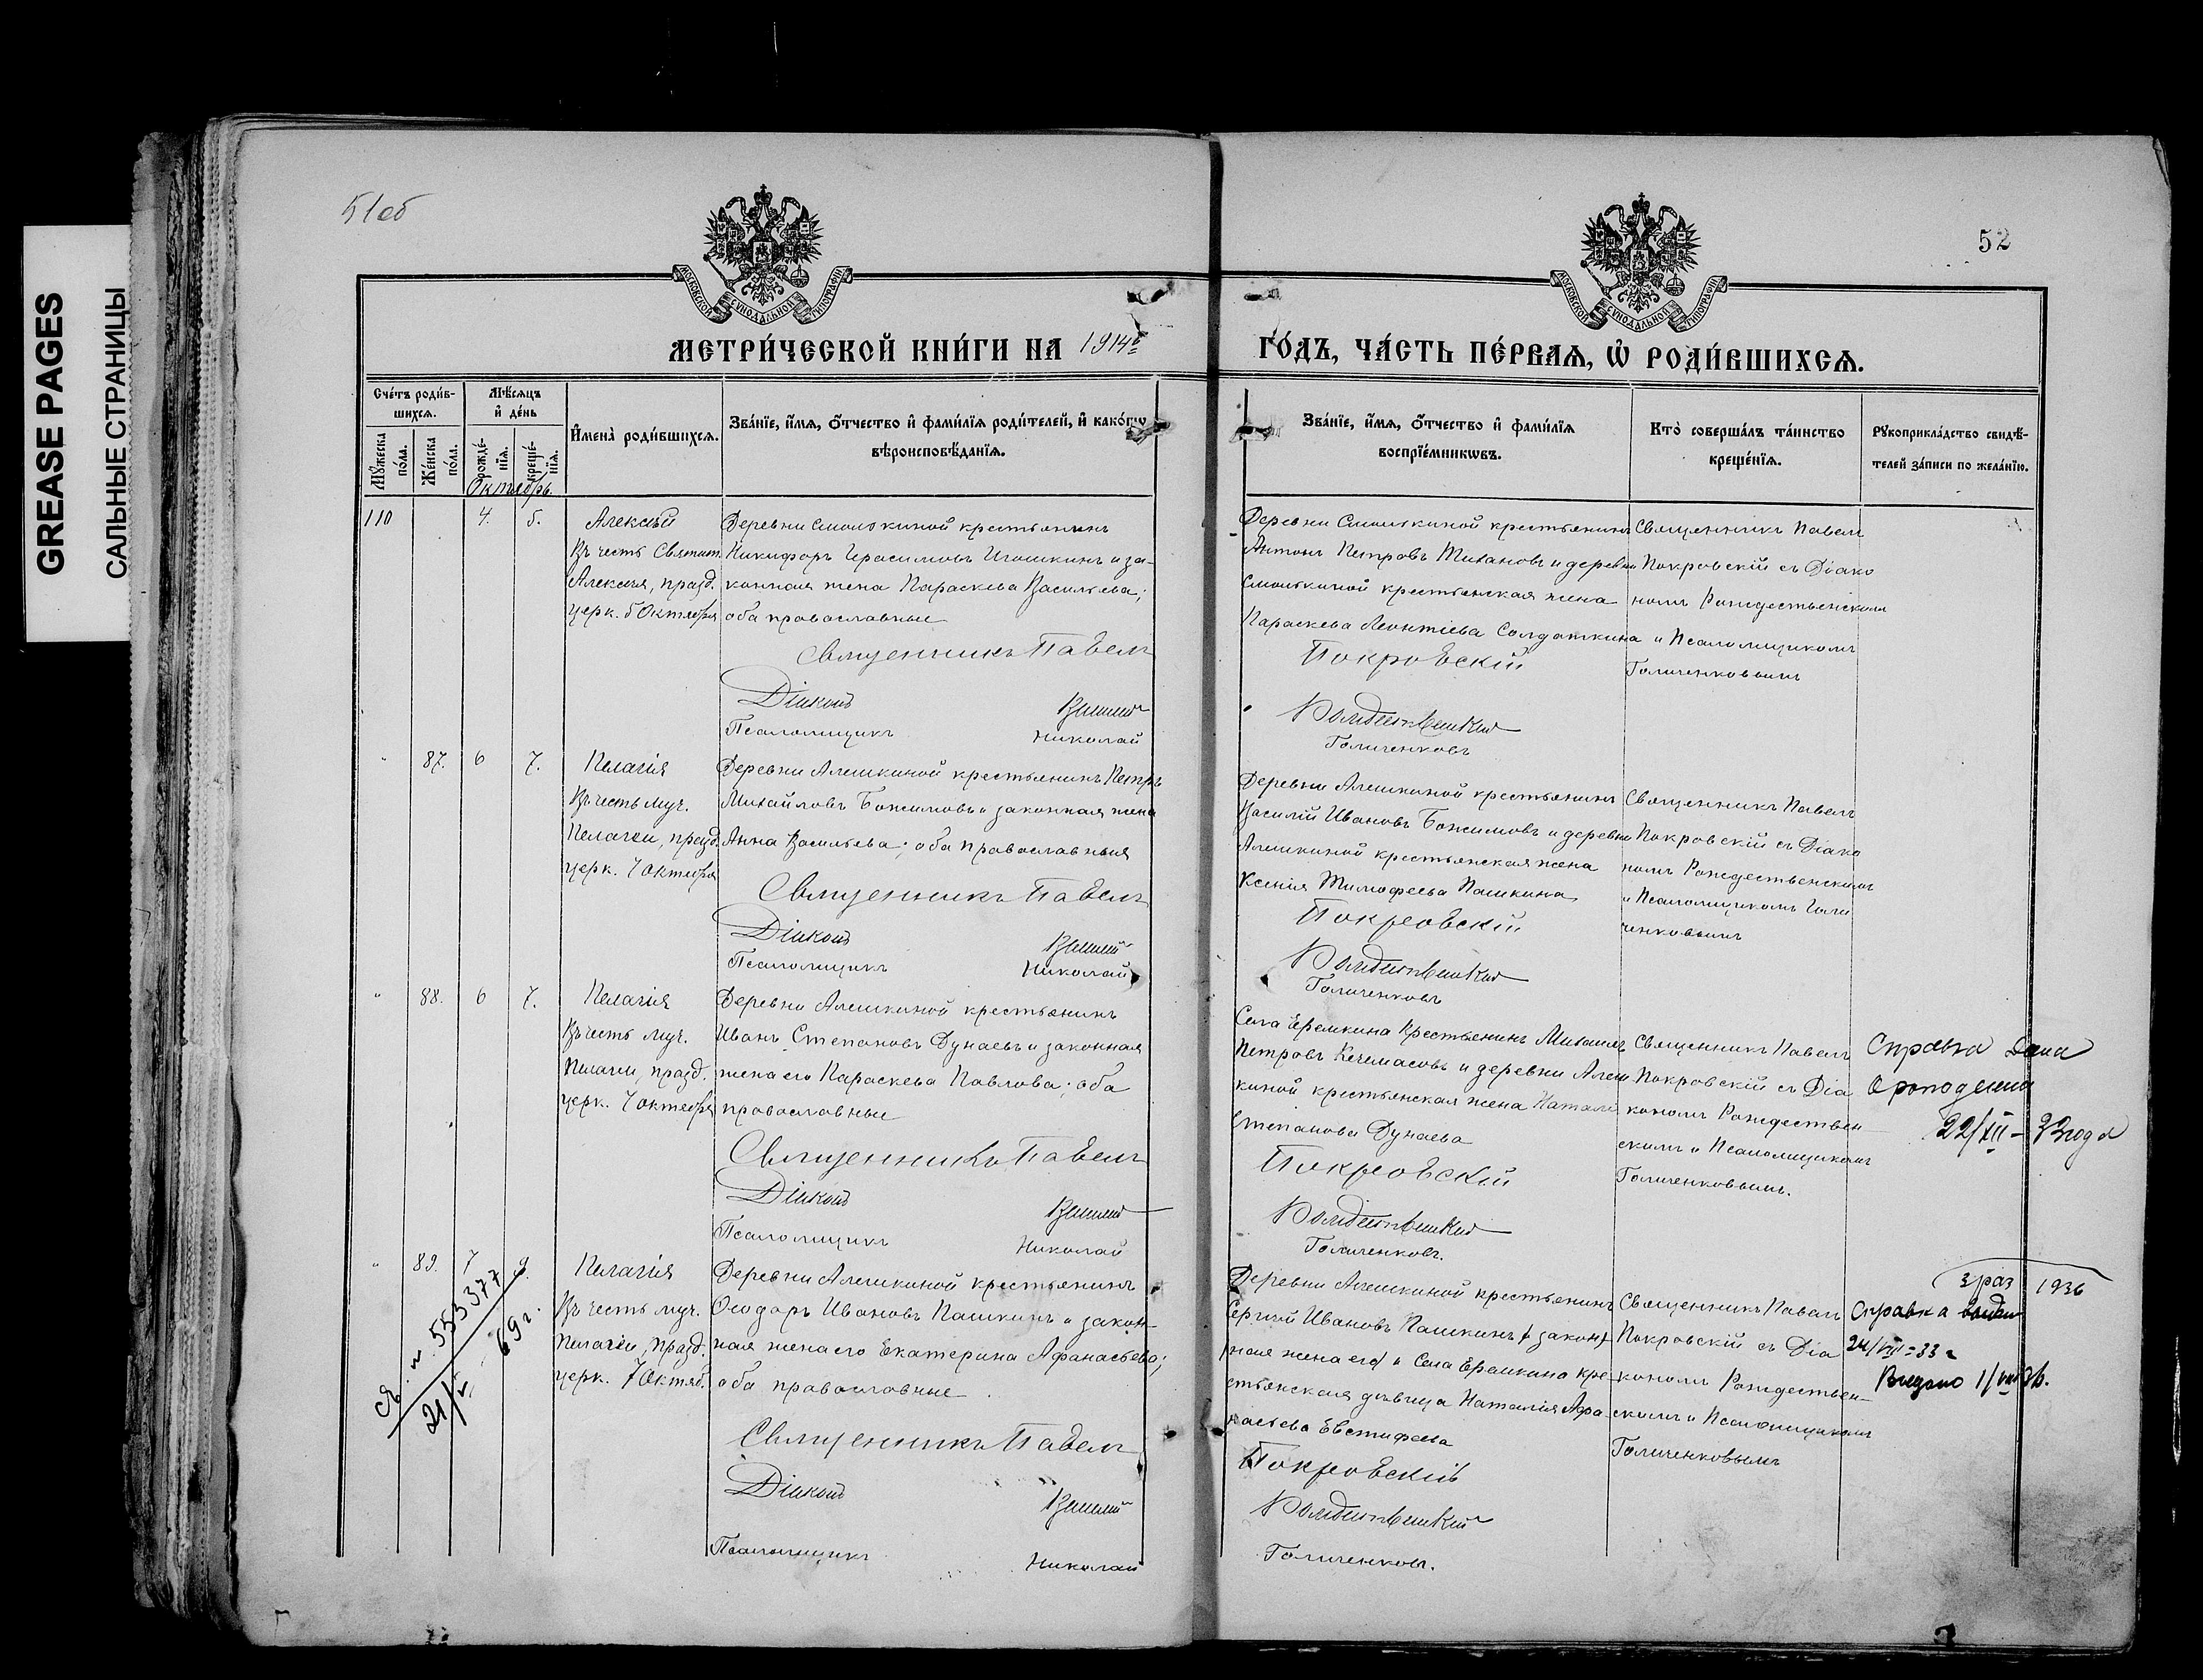 GREASE PAGES
САЛЬНЫЕ СТРАНИЦЫ
51об
52
МОСКОВСКОЙ СѴНОДАЛЬНОЙ ТИПОГРАФІИ
МОСКОВСКОЙ СѴНОДАЛЬНОЙ ТИПОГРАФІИ
МЕТРИ́ЧЕСКОЙ КНИ́ГИ НА 1914й
ГО́ДЪ, ЧА́СТЬ ПЕ́РВАѦ, Ѡ РОДИ́ВШИХСѦ.
Сче́тъ роди́в-
шихсѧ.
Мꙋ́жеска по́ла.
Же́нска по́ла.
Мѣ́сѧцъ
и҆ де́нь
рожде́-
нїѧ.
креще́-
нїѧ.
И҆мена̀ роди́вшихсѧ.
Зва́нїе, и҆́мѧ, ѻ҆́тчество и҆ фами́лїѧ роди́телей, и҆ како́гѡ
вѣроисповѣ́данїѧ.
Зва́нїе, и҆́мѧ, ѻ҆́тчество и҆ фами́лїѧ
воспрїе́мникѡвъ.
Кто̀ соверша́лъ та́инство
креще́нїѧ.
Рꙋкоприкла́дство свидѣ́-
телей за́писи по жела́нїю.
Октябрь.
110
4.
5.
Алексѣй
Въ честь Святит.
Алексія, празд.
церк. 5 Октября
Деревни Смолькиной крестьянинъ
Никифоръ Герасимовъ Игошкинъ и за-
конная жена Параскева Васильева;
оба православные
Священникъ Павелъ
Діаконъ Василій
Псаломщикъ Николай
Деревни Смолькиной крестьянинъ
Антонъ Петровъ Тихановъ и деревни
Смолькиной крестьянская жена
Параскева Леонтіева Солдаткина
Покровскій
Рождественскій
Голиченковъ
Священникъ Павелъ
Покровскій съ Діако
номъ Рождественскимъ
и Псаломщикомъ
Голиченковымъ
"
87.
6
7.
Пелагія
Въ честь муч.
Пелагіи, празд.
церк. 7 октября
Деревни Алешкиной крестьянинъ Петръ
Михайловъ Божимовъ и законная жена
Анна Васильева; оба православныя
Священникъ Павелъ
Діаконъ Василій
Псаломщикъ Николай
Деревни Алешкиной крестьянинъ
Василій Ивановъ Божимовъ и деревни
Алешкиной крестьянская жена
Ксенія Тимофеева Пашкина
Покровскій
Рождественскій
Голиченковъ
Священникъ Павелъ
Покровскій съ Діако
номъ Рождественскимъ
и Псаломщикомъ Голи
ченковымъ
"
88.
6
7.
Пелагія
Въ честь муч.
Пелагіи, празд.
церк. 7 октября
Деревни Алешкиной крестьянинъ
Иванъ Степановъ Дунаевъ и законная
жена его Параскева Павлова; оба
православные
Священникъ Павелъ
Діаконъ Василій
Псаломщикъ Николай
Села Еремкина крестьянинъ Михаилъ
Петровъ Кечемасовъ и деревни Алеш
киной крестьянская жена Наталі
Степанова Дунаева
Покровскій
Рождественскій
Голиченковъ.
Священникъ Павелъ
Покровскій съ Діа
кономъ Рождествен
скимъ и Псаломщикомъ
Голиченковымъ.
Справка дана
о рождении
22/XII - 33 года
"
89.
7
9.
Пелагія
Въ честь муч.
Пелагіи, празд.
церк. 7 Октяб.
Деревни Алешкиной крестьянинъ
Ѳеодоръ Ивановъ Пашкинъ и закон-
ная жена его Екатерина Афанасьева;
оба православные
Священникъ Павелъ
Діаконъ Василій
Псаломщикъ Николай
Деревни Алешкиной крестьянинъ
Сергѣй Ивановъ Пашкинъ (и закон)
(ная жена его) и Села Еремкино кре-
стьянская дѣвица Наталія Афа-
насьева Евстифеева
Покровскій
Рождественскій
Голиченковъ.
Священникъ Павелъ
Покровскій съ Діа
кономъ Рождествен-
скимъ и Псаломщикомъ
Голиченковымъ
3 раз 1936
Справка
24/VII-33 г
Выдано
№ 553377
69 г.